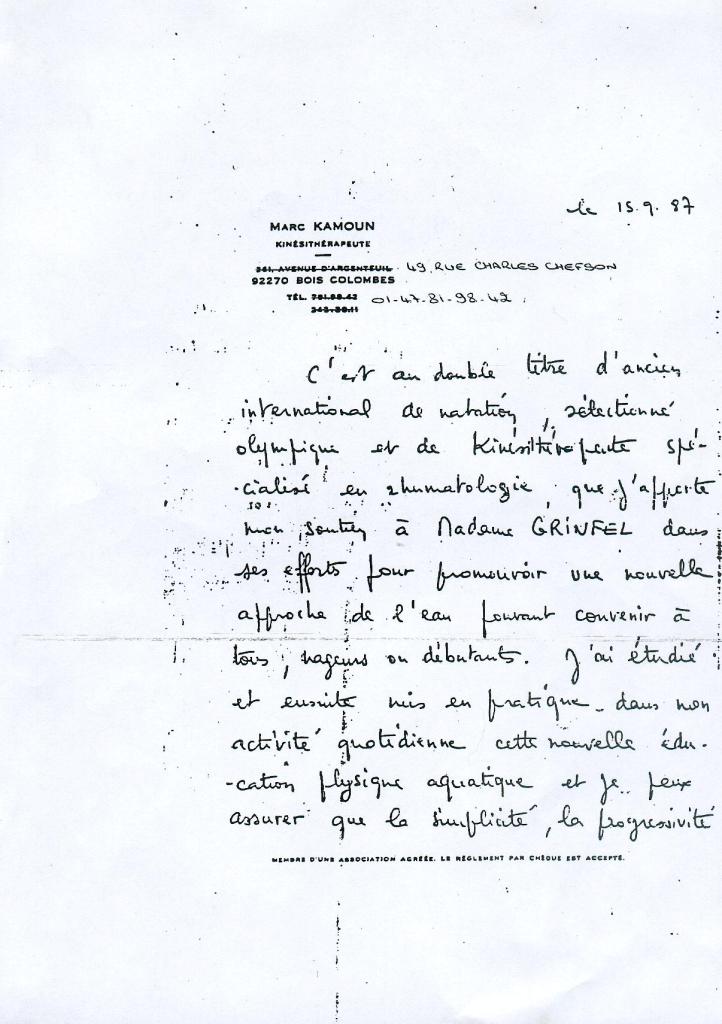 le 15.9.87
MARC KAMOUN
KINÉSITHÉRAPEUTE
361, AVENUE D'ARGENTEUIL 49, RUE CHARLES CHEFSON
92270 BOIS COLOMBES
TÉL. 781.98.42 01-47-81-98-42
C'est au double titre d'ancien
international de natation, sélectionné
olympique et de Kinésithérapeute spé-
-cialisé en rhumatologie que j'apporte
mon soutien à Madame GRINFEL dans
ses efforts pour promouvoir une nouvelle
approche de l'eau pouvant convenir à
tous, nageurs ou débutants. J'ai étudié
et ensuite mis en pratique dans mon
activité quotidienne cette nouvelle édu-
-cation physique aquatique et je peux
assurer que la simplicité, la progressivité
MEMBRE D'UNE ASSOCIATION AGRÉÉE. LE RÈGLEMENT PAR CHÈQUE EST ACCEPTÉ.